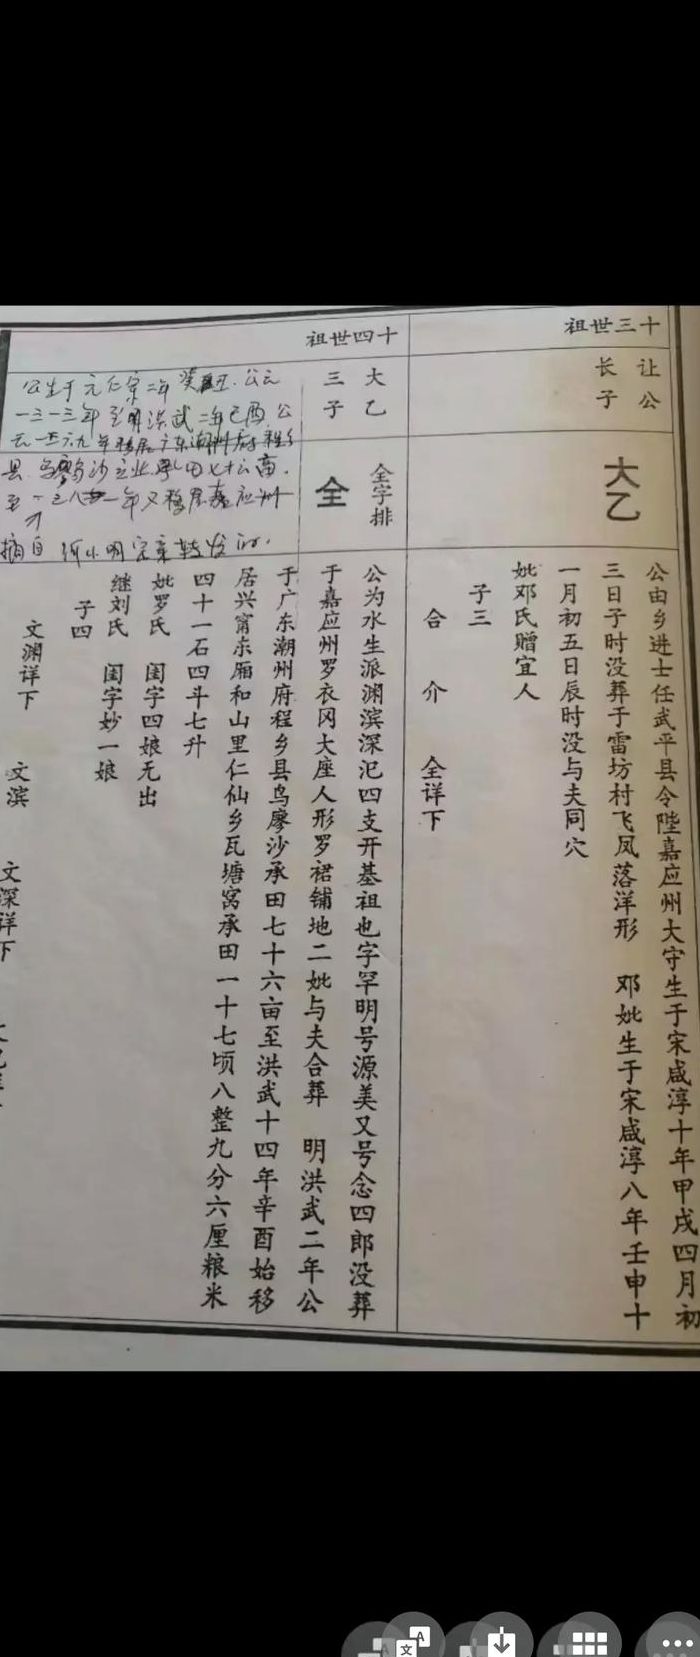 十三世祖
让公
长子
大乙
公由乡进士任武平县令陛嘉应州大守生于宋咸淳十年甲戌四月初
三日子时没葬于雷坊村飞凤落洋形 邓妣生于宋咸淳八年壬申十
一月初五日辰时没与夫同穴
妣邓氏赠宜人
子三
合 介 全详下
十四世祖
大乙
三子
全字排
全
公为水生派渊滨深汜四支开基祖也字罕明号源美又号念四郎没葬
于嘉应州罗衣冈大座人形罗裙铺地二妣与夫合葬 明洪武二年公
于广东潮州府程乡县乌廖沙承田七十六亩至洪武十四年辛酉始移
居兴甯东厢和山里仁仙乡瓦塘窝承田一十七顷八整九分六厘粮米
四十一石四斗七升
妣罗氏 闺字四娘无出
继刘氏 闺字妙一娘
子四
文渊详下 文滨
文深详下
公生于元仁宗二年癸丑.公元
一三一三年至明洪武二年已酉公
元一三六九年移居广东潮州府程乡
县乌廖沙立业承田七十六亩.
至一三八一年又移居嘉应州
摘自 宗亲转发的.